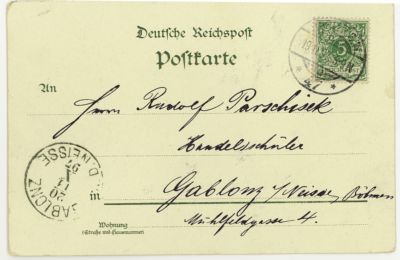 Deutsche Reichspost
Postkarte
5
An
Herrn Rudolf Parschisek
Handelsschüler
in Gablonz a/Neisse, Böhmen
Wohnung
(Straße und Hausnummer)
Mühlfeldgasse 4.
GABLONZ
20
11
97